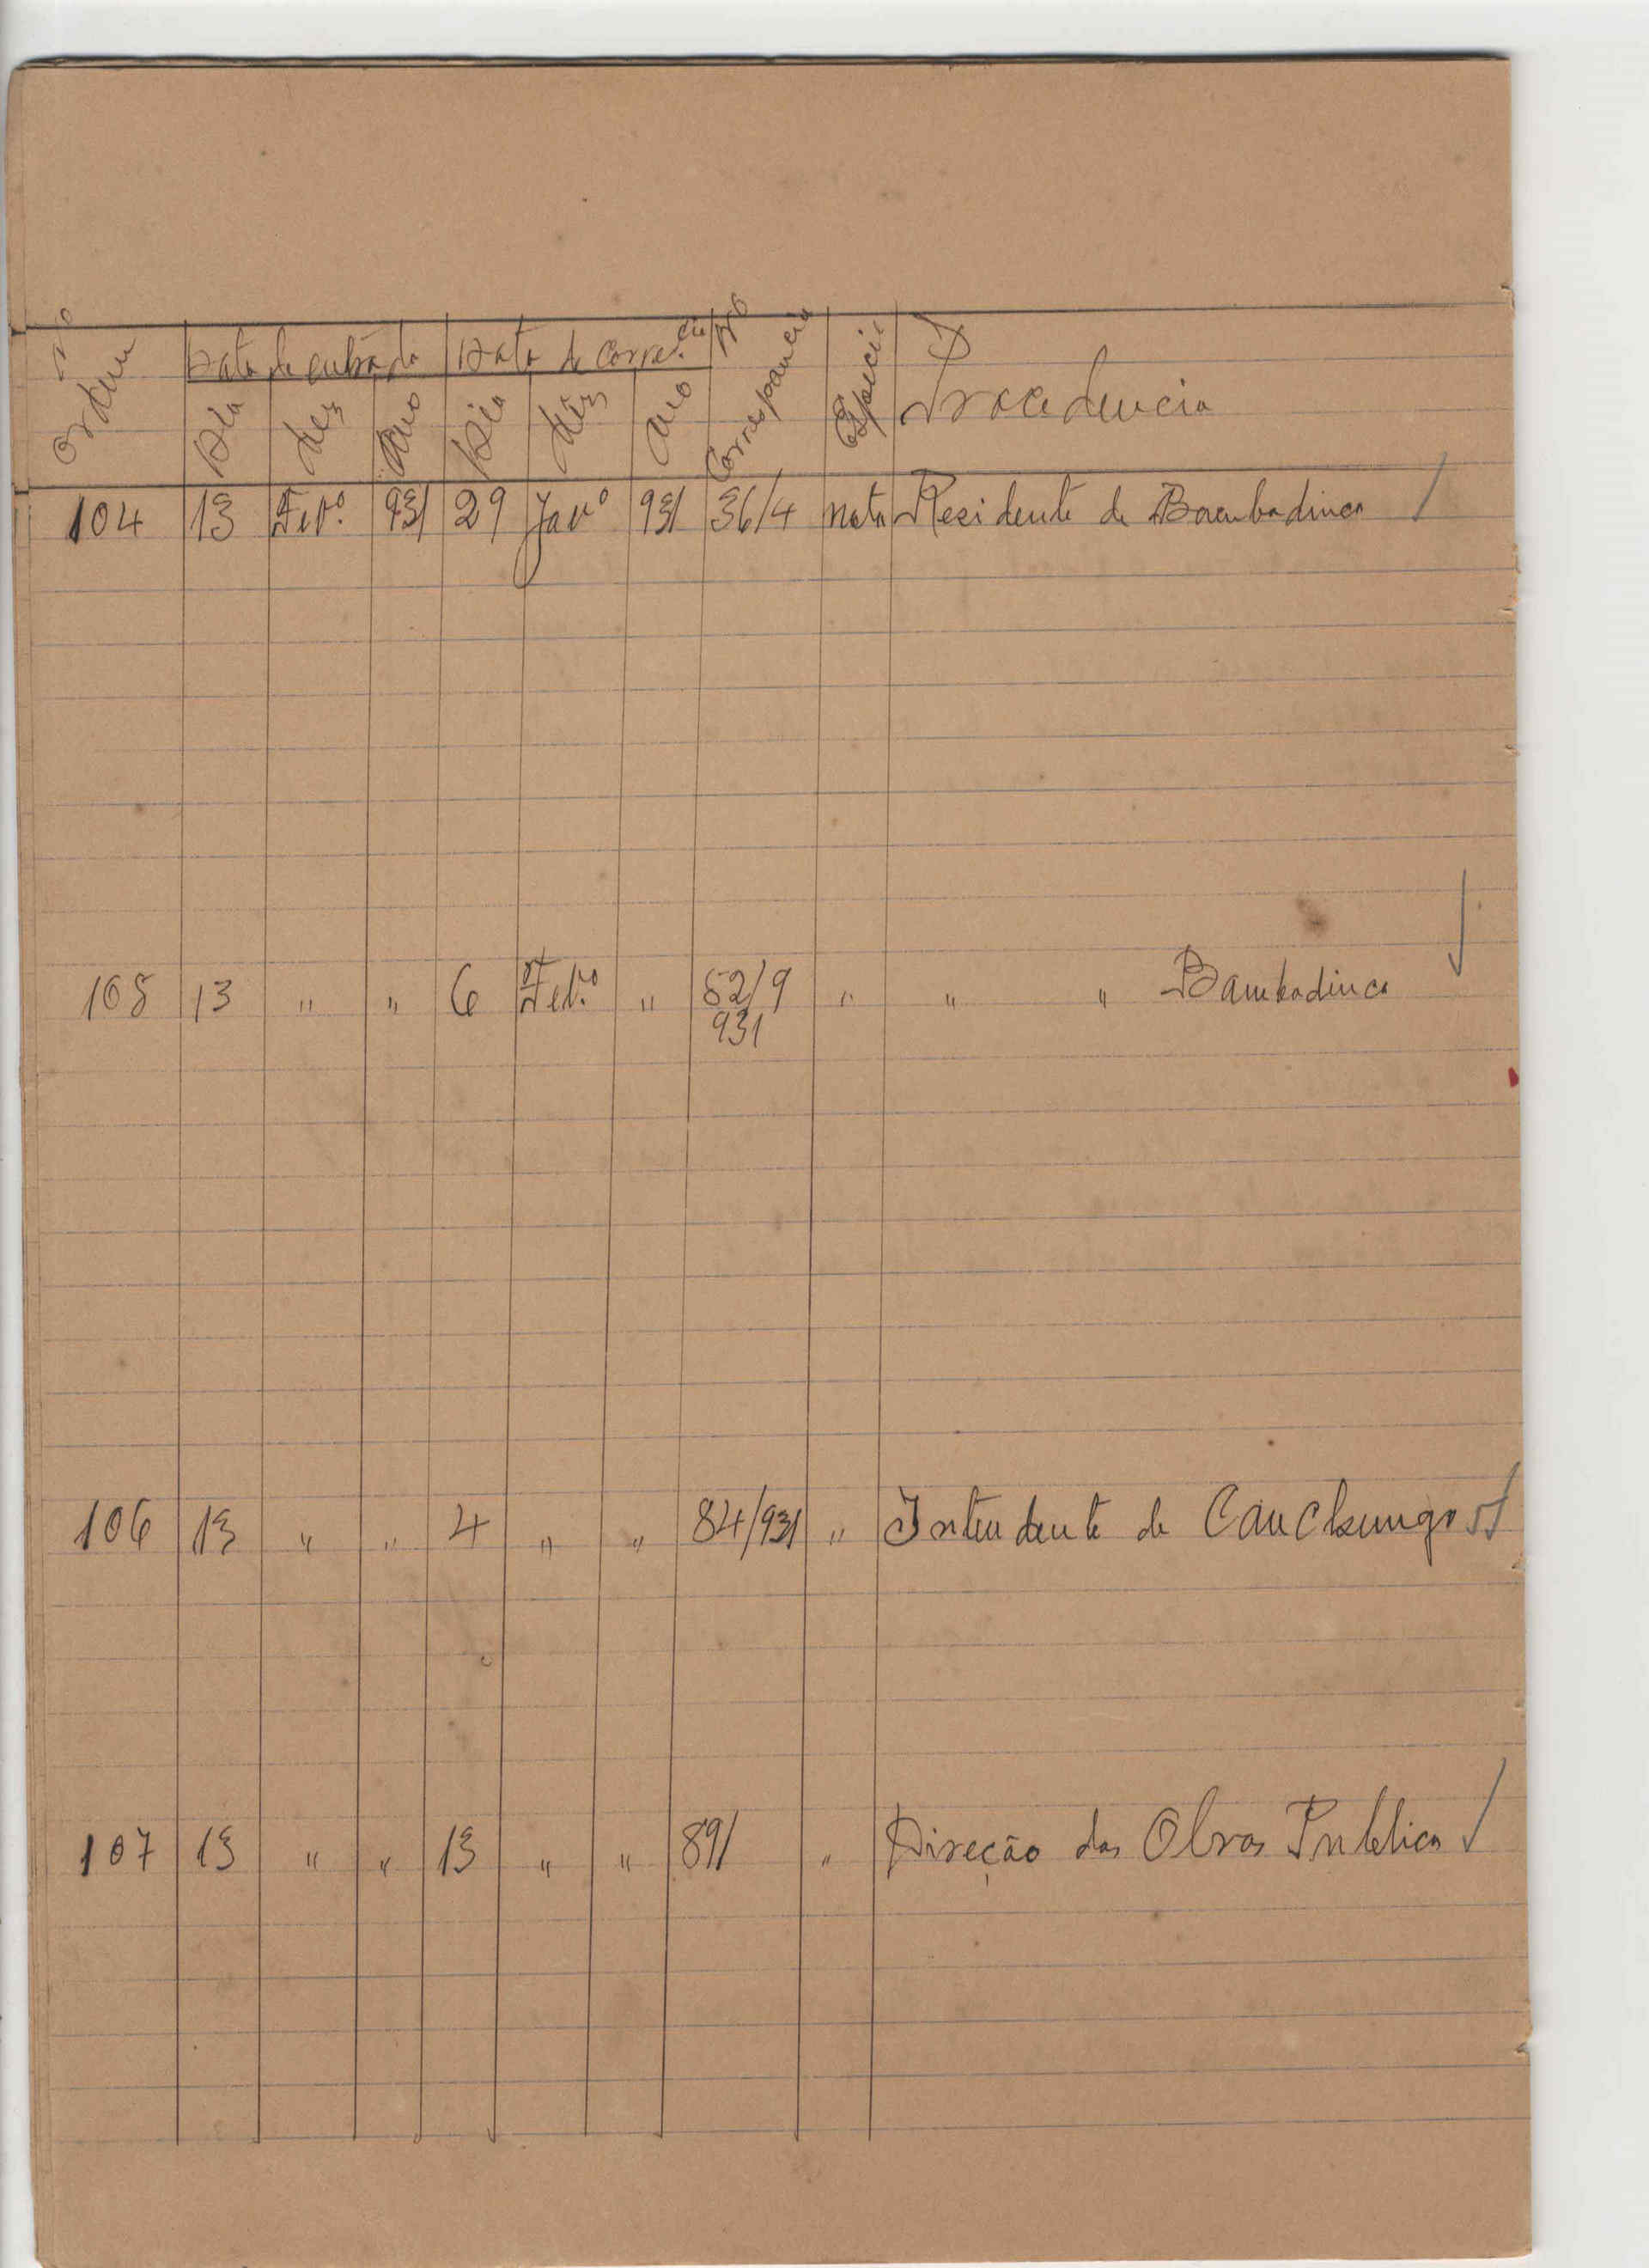 Nº Ordem Data de entrada Data de Corre.cia Nº Correspancia Especie Procedencia
Dia Mez Ano Dia Mês Ano
104 13 Fevº. 931 29 Janº 931 36/4 nota Residente de Bambadinca
105 13 " " 6 Fevº " 52/9 " " " Bambadinca
931
106 13 " " 4 " " 84/931 " Intendente de Canchungo
107 13 " " 13 " " 891 " Direção das Obras Publica